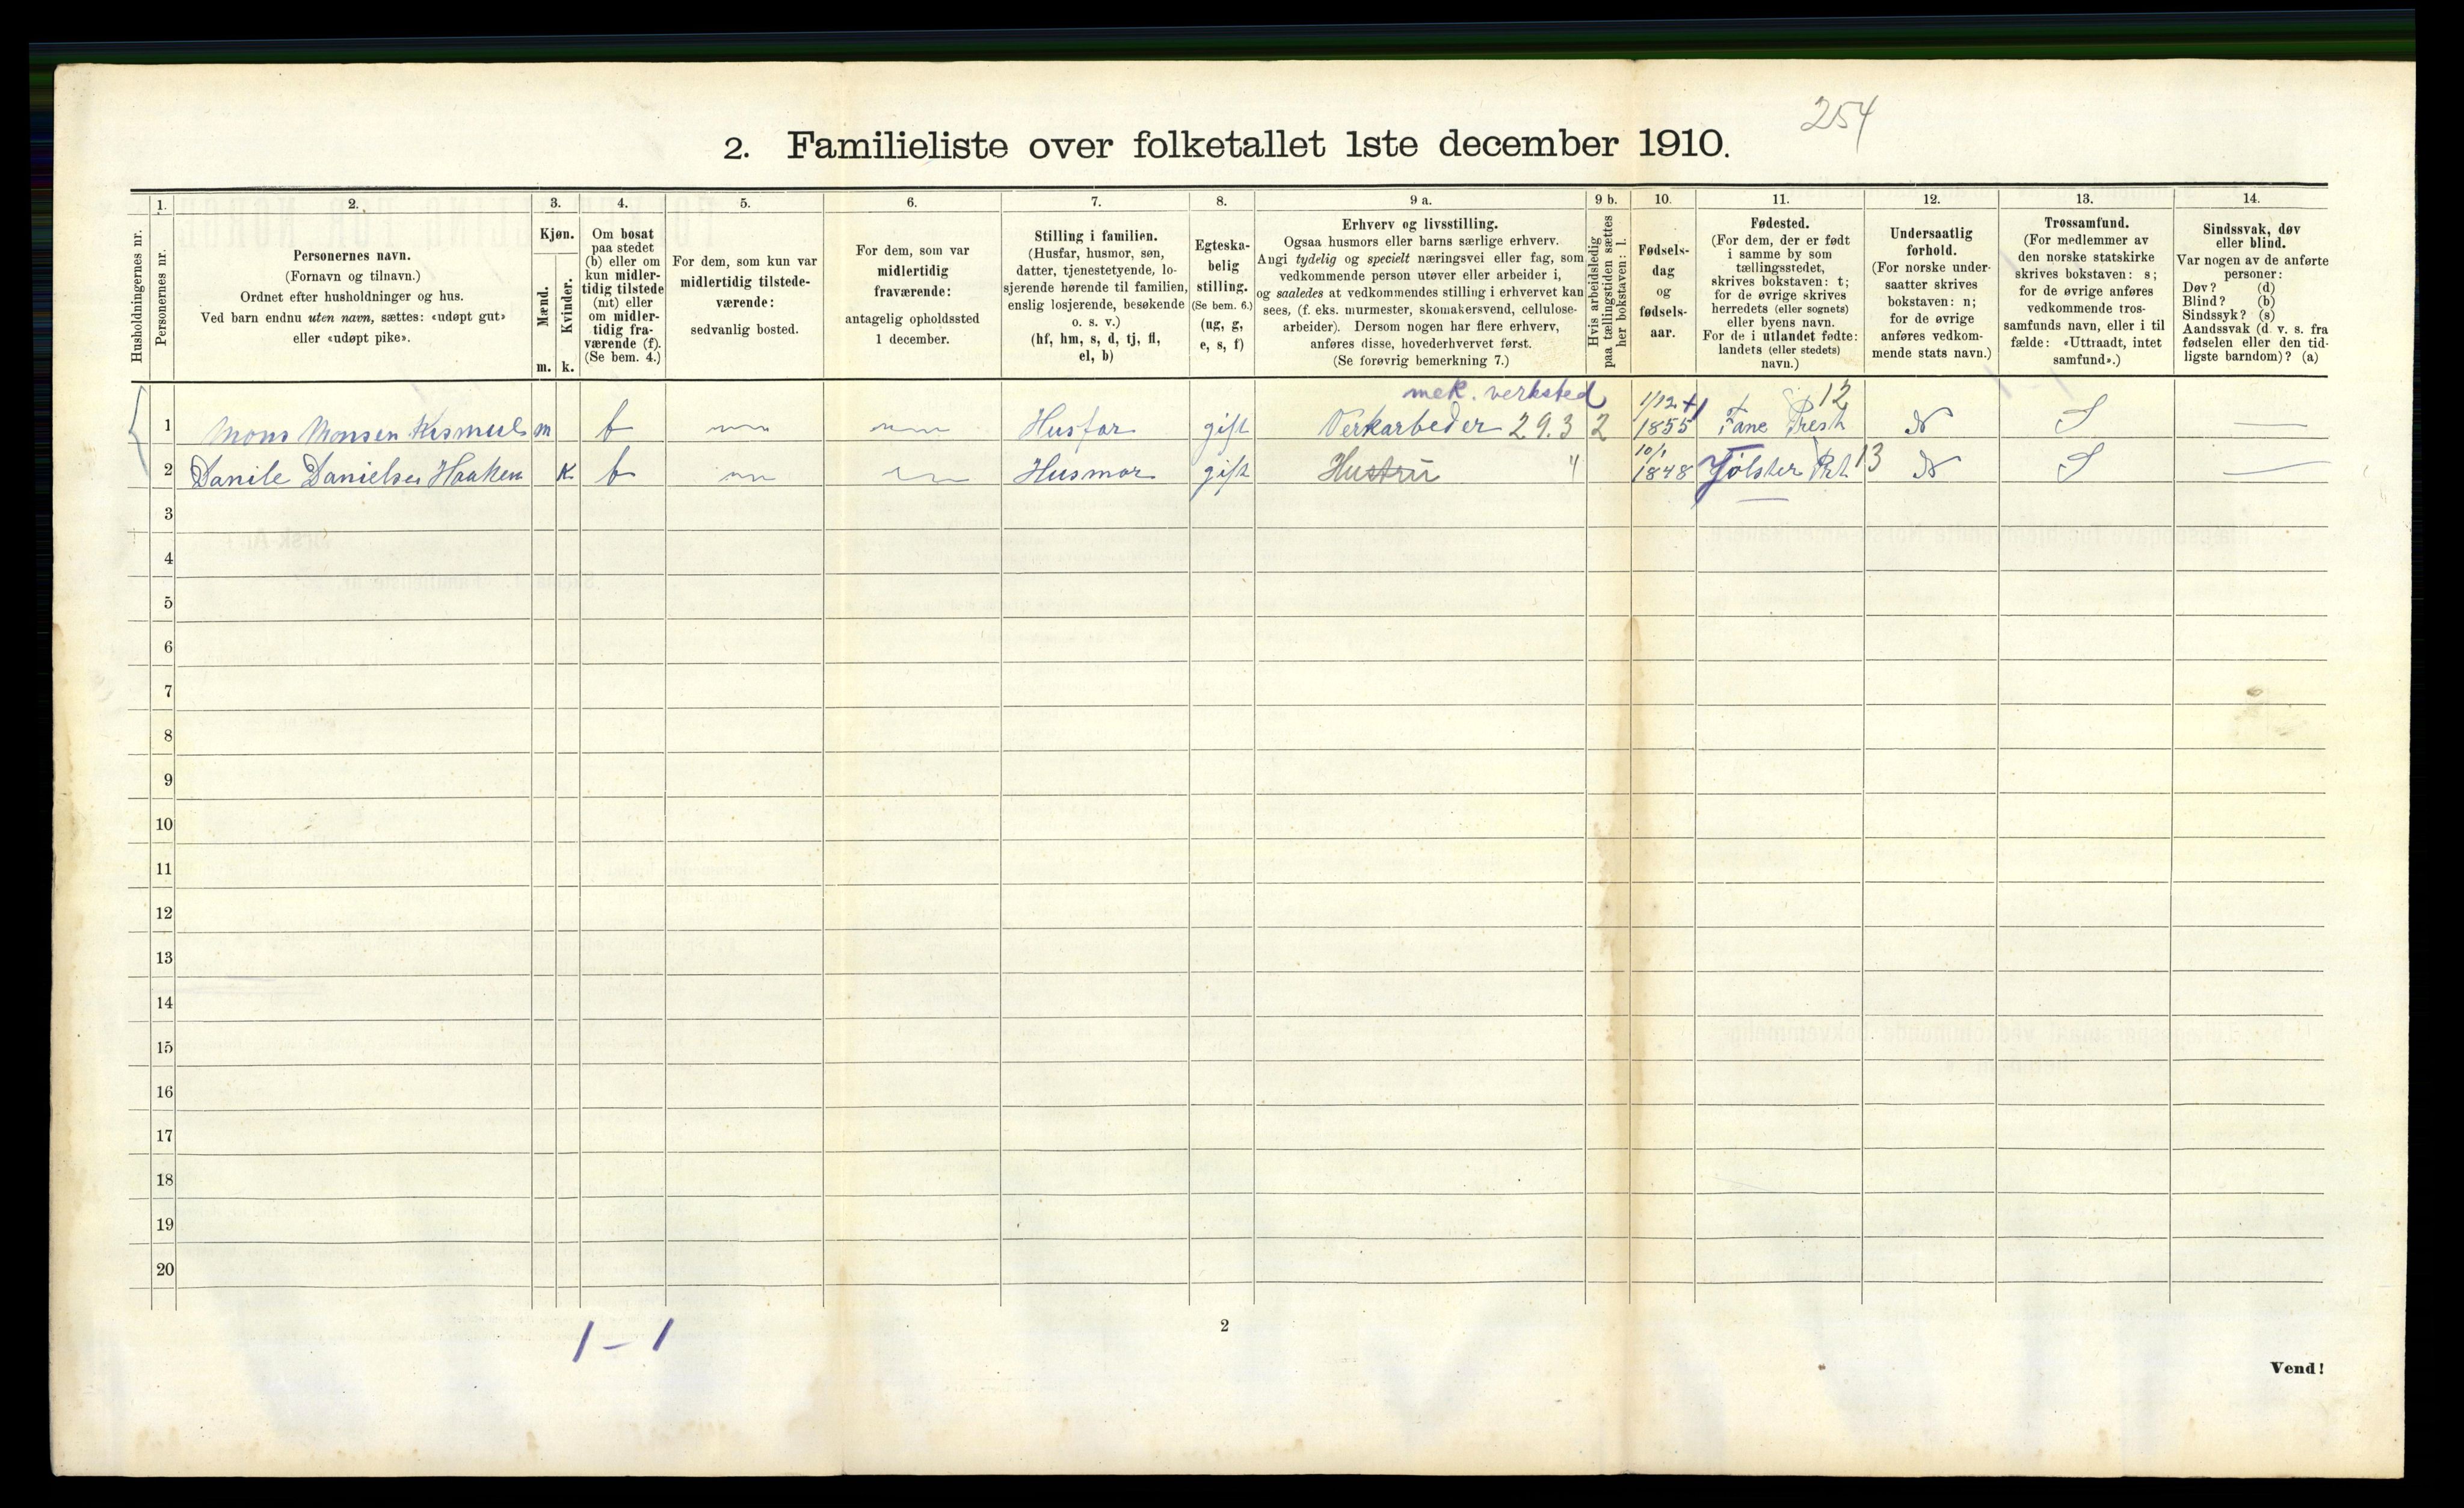 254
2. Familieliste over folketallet 1ste december 1910.
Husholdningernes nr.
1.
Personernes nr.
2.
Personernes navn.
(Fornavn og tilnavn.)
Ordnet efter husholdninger og hus.
Ved barn endnu uten navn, sættes: «udøpt gut»
eller «udøpt pike».
3.
Kjøn.
Mænd.
Kvinder.
m. k.
4.
Om bosat
paa stedet
(b) eller om
kun midler-
tidig tilstede
(mt) eller
om midler-
tidig fra-
værende (f).
(Se bem. 4.)
5.
For dem, som kun var
midlertidig tilstede-
værende:
sedvanlig bosted.
6.
For dem, som var
midlertidig
fraværende:
antagelig opholdssted
1 december.
7.
Stilling i familien.
(Husfar, husmor, søn,
datter, tjenestetyende, lo-
sjerende hørende til familien,
enslig losjerende, besøkende
o. s. v.)
(hf, hm, s, d, tj, fl,
el, b)
8.
Egteska-
belig
stilling.
(Se bem. 6.)
(ug, g,
e, s, f)
9 a.
Erhverv og livsstilling.
Ogsaa husmors eller barns særlige erhverv.
Angi tydelig og specielt næringsvei eller fag, som
vedkommende person utøver eller arbeider i,
og saaledes at vedkommendes stilling i erhvervet kan
sees, (f. eks. murmester, skomakersvend, cellulose-
arbeider). Dersom nogen har flere erhverv,
anføres disse, hovederhvervet først.
(Se forøvrig bemerkning 7.)
9 b.
Hvis arbeidsledig
paa tællingstiden sættes
her bokstaven: l.
10.
Fødsels-
dag
og
fødsels-
aar.
11.
Fødested.
(For dem, der er født
i samme by som
tællingsstedet,
skrives bokstaven: t;
for de øvrige skrives
herredets (eller sognets)
eller byens navn.
For de i utlandet fødte:
landets (eller stedets)
navn.)
12.
Undersaatlig
forhold.
(For norske under-
saatter skrives
bokstaven: n;
for de øvrige
anføres vedkom-
mende stats navn.)
13.
Trossamfund.
(For medlemmer av
den norske statskirke
skrives bokstaven: s;
for de øvrige anføres
vedkommende tros-
samfunds navn, eller i til
fælde: «Uttraadt, intet
samfund».)
14.
Sindssvak, døv
eller blind.
Var nogen av de anførte
personer:
Døv? (d)
Blind? (b)
Sindssyk? (s)
Aandssvak (d. v. s. fra
fødselen eller den tid-
ligste barndom)? (a)
mek. verksted
1/12 12
1 Mons Monsen Kismul m b Husfar gift Verkarbeder 29.3 2 1855 Fane Presh N S —
10/1
2 Danile Danielsen Haaken K b Husmor gift Hustru " 1848 Jølster Prt 13 N S —
3
4
5
6
7
8
9
10
11
12
13
14
15
16
17
18
19
20
1 – 1
2
Vend!